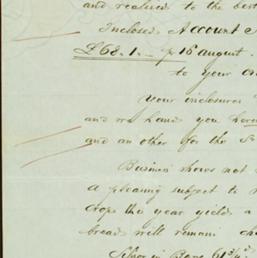 and realised to the best
Inclosed Account
£68.1.– p 16 august.
to your
Your inclosures
and we hand you here
and an other for the
Business shows not
a pleasing subject to
crops the year yields a
bread will remain
Silver in Bars 61 3/4